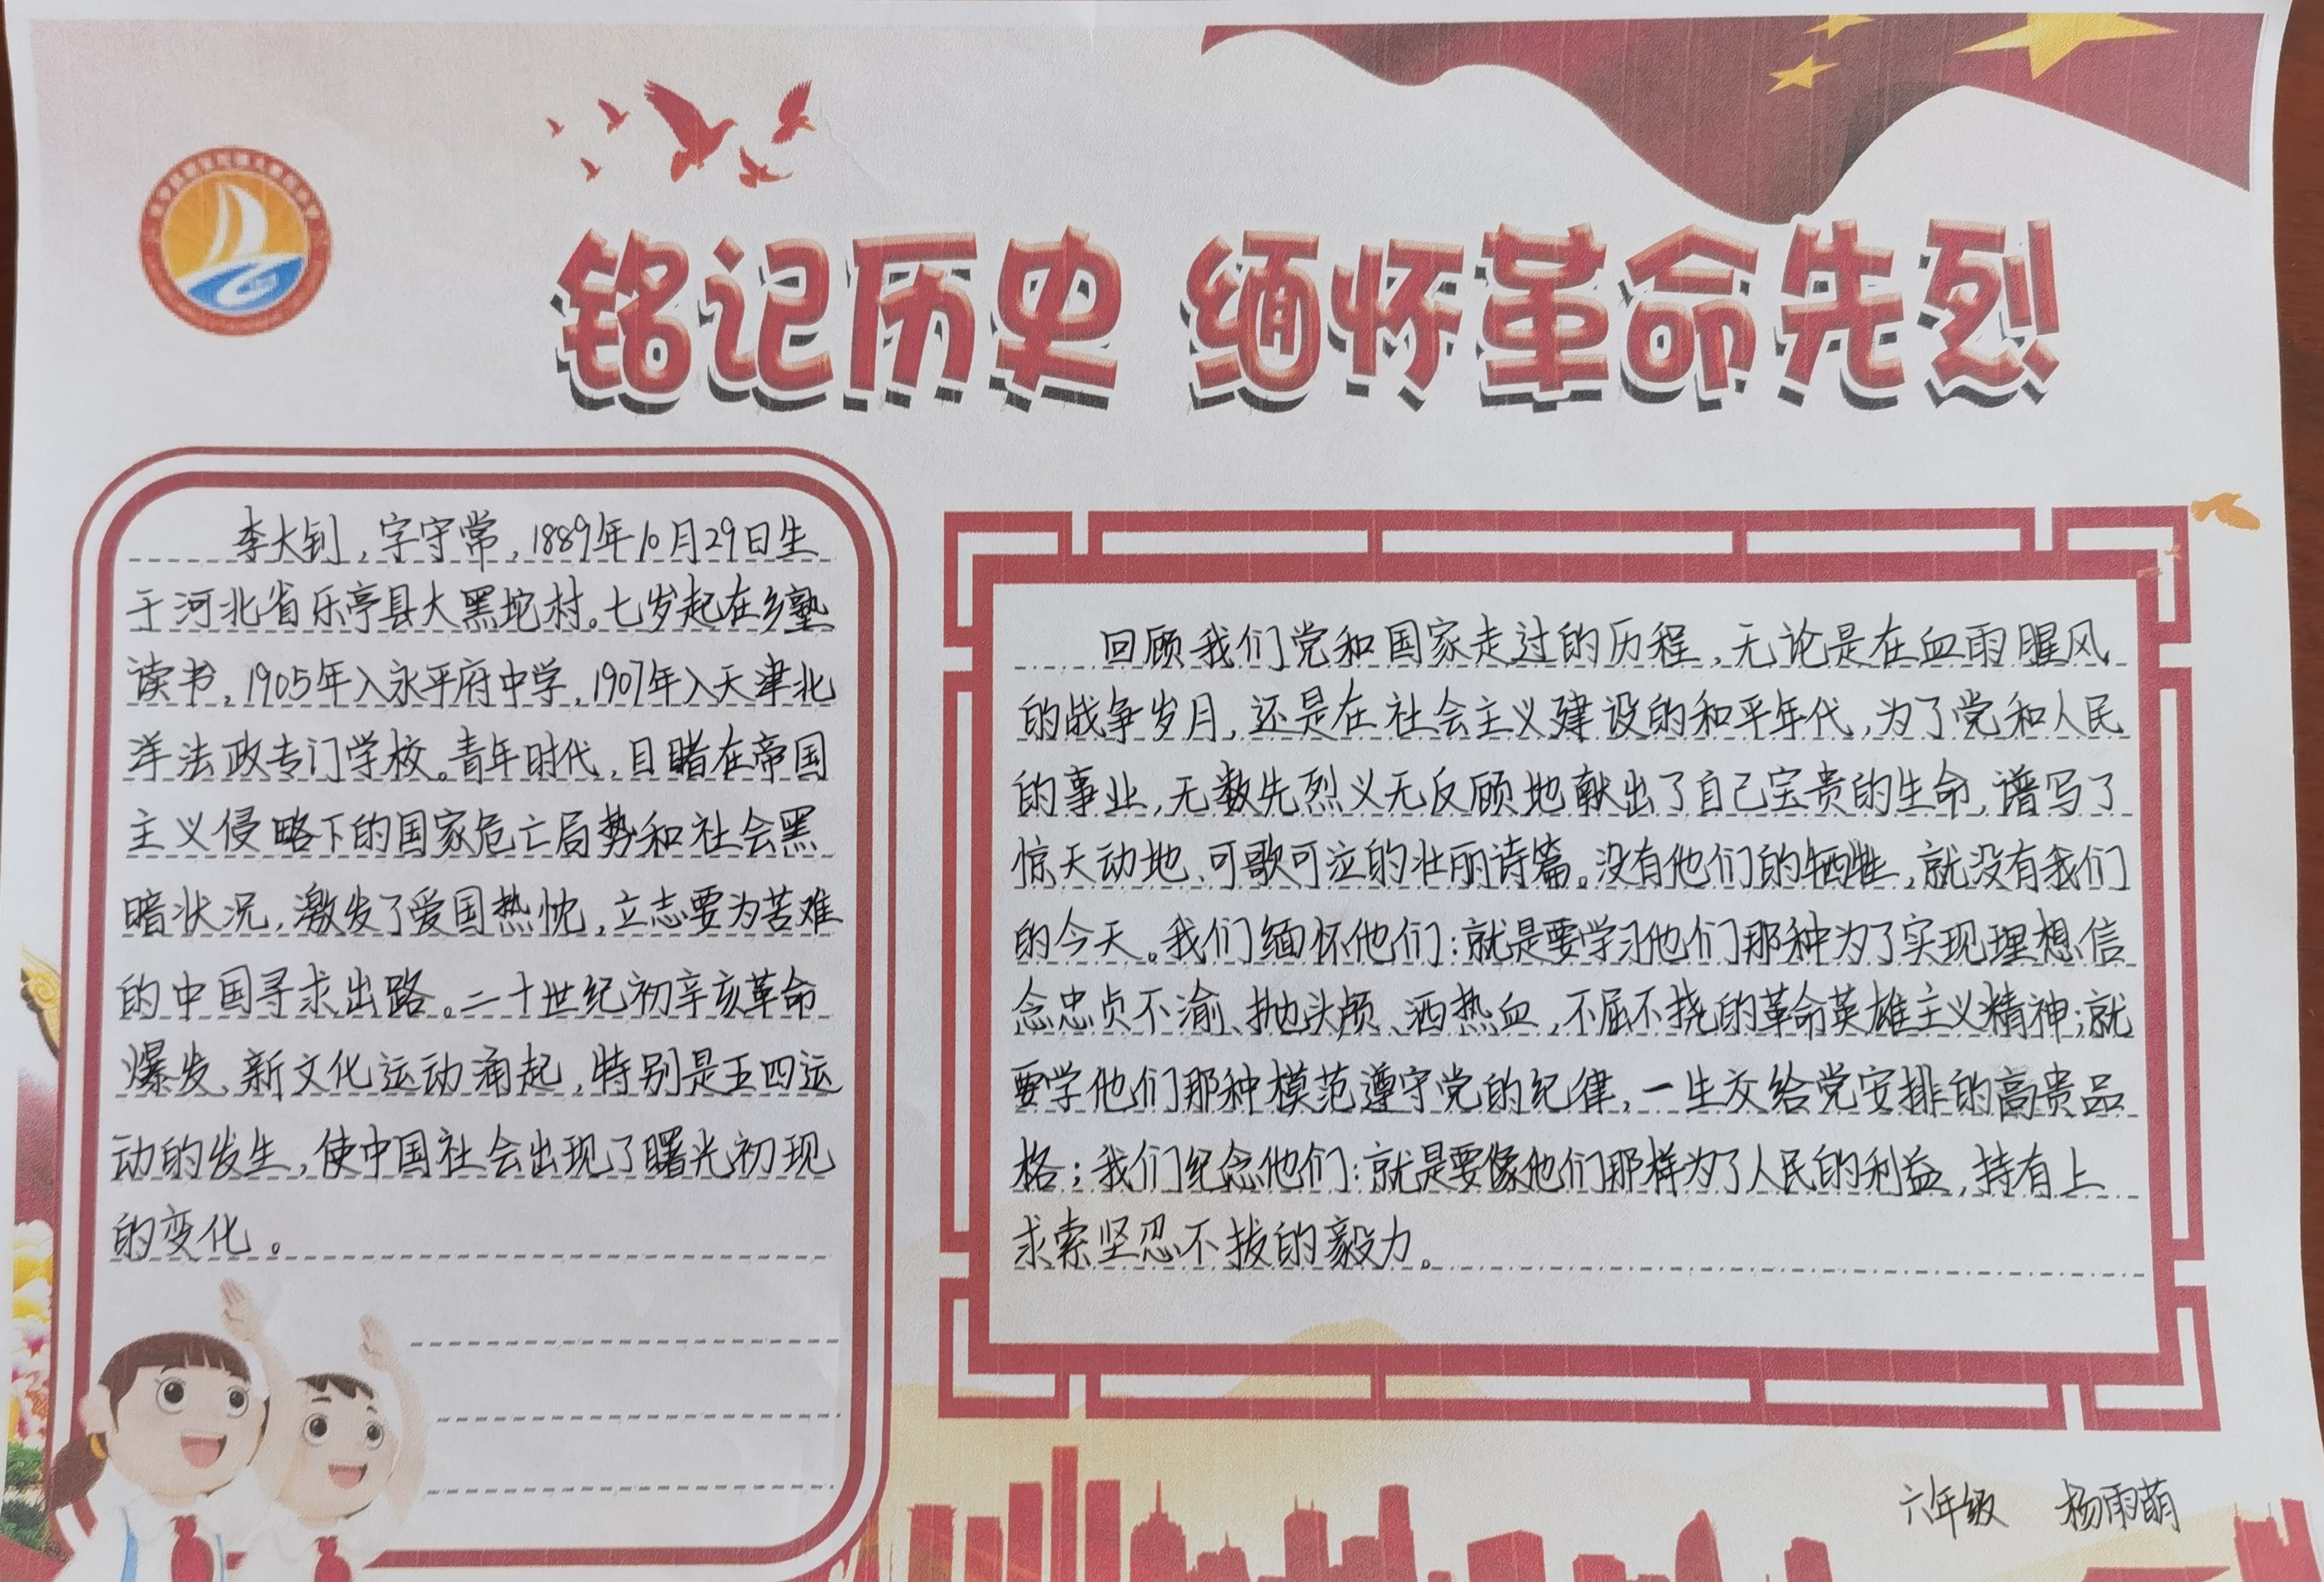 铭记历史 缅怀革命先烈
李大钊,字守常,1889年10月29日生
于河北省乐亭县大黑坨村。七岁起在乡塾
读书,1905年入永平府中学,1907年入天津北
洋法政专门学校。青年时代,目睹在帝国
主义侵略下的国家危亡局势和社会黑
暗状况,激发了爱国热忱,立志要为苦难
的中国寻求出路。二十世纪初辛亥革命
爆发、新文化运动涌起,特别是五四运
动的发生,使中国社会出现了曙光初现
的变化。
回顾我们党和国家走过的历程,无论是在血雨腥风
的战争岁月,还是在社会主义建设的和平年代,为了党和人民
的事业,无数先烈义无反顾地献出了自己宝贵的生命,谱写了
惊天动地、可歌可泣的壮丽诗篇。没有他们的牺牲,就没有我们
的今天。我们缅怀他们:就是要学习他们那种为了实现理想信
念忠贞不渝、抛头颅、洒热血,不屈不挠的革命英雄主义精神;就
要学他们那种模范遵守党的纪律,一生交给党安排的高贵品
格;我们纪念他们:就是要像他们那样为了人民的利益,持有上
求索坚忍不拔的毅力。
六年级 杨雨萌